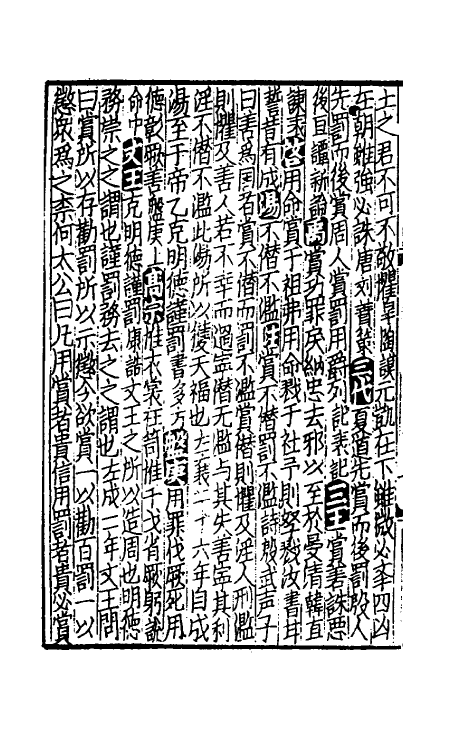 士之君不可不敬懼皐陶謨元凱在下雖微必擧四凶
在朝雖強必誅唐文賛策三代夏道先賞而後罰殷人
先罰而後賞周人賞罰用爵列記表記三王賞善誅惡
後旦讒新論禹賞功罪戾納忠去邪以至於曼倩韓直
諫表啓用命賞于祖弗用命戮于社予則孥戮汝書耳
誓昔有成湯不僭不濫注賞不僭罰不濫詩殷武声子
曰善為國者賞不僭而罰不濫賞僭則懼及淫人刑濫
則懼及善人若不幸而過寧僭無濫與其失善寧其利
淫不僭不濫此湯所以獲天福也左襄二十六年自成
湯至于帝乙克明德謹罰書多方盤庚用罪伐厥死用
德彰厥善盤庚上高宗惟衣裳在笥惟干戈省厥躬說
命中文王克明德謹罰康誥文王之所以造周也明德
務崇之之謂也謹罰務去之之謂也左成二年文王問
曰賞所以存勸罰所以示懲今欲賞一以勸百罰一以
懲眾為之柰何太公曰凡用賞者貴信用罰者貴必賞